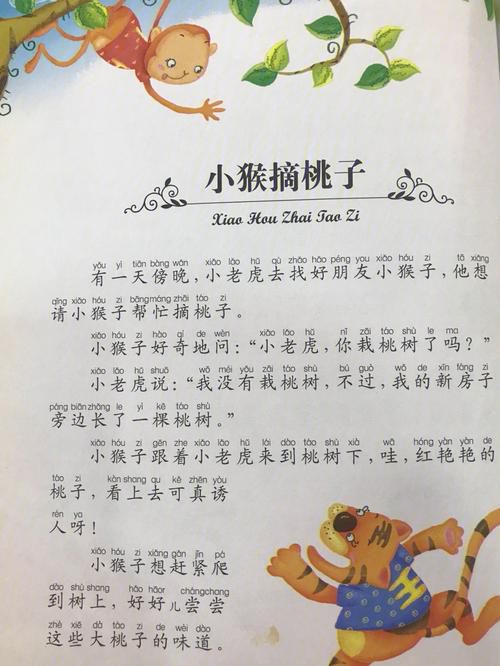 小猴摘桃子
Xiao Hou Zhai Tao Zi
yǒu yì tiān bàng wǎn xiǎo lǎo hǔ qù zhǎo hǎo péng you xiǎo hóu zi tā xiǎng
有一天傍晚，小老虎去找好朋友小猴子，他想
qǐng xiǎo hóu zi bāng máng zhāi táo zi
请小猴子帮忙摘桃子。
xiǎo hóu zi hào qí de wèn xiǎo lǎo hǔ nǐ zāi táo shù le ma
小猴子好奇地问：“小老虎，你栽桃树了吗？”
xiǎo lǎo hǔ shuō wǒ méi yǒu zāi táo shù bú guò wǒ de xīn fáng zi
小老虎说：“我没有栽桃树，不过，我的新房子
páng biān zhǎng le yì kē táo shù
旁边长了一棵桃树。”
xiǎo hóu zi gēn zhe xiǎo lǎo hǔ lái dào táo shù xià wā hóng yàn yàn de
小猴子跟着小老虎来到桃树下，哇，红艳艳的
táo zi kàn shang qu kě zhēn yòu
桃子，看上去可真诱
rén ya
人呀！
xiǎo hóu zi xiǎng gǎn jǐn pá
小猴子想赶紧爬
dào shù shang hǎo hāor chángchang
到树上，好好儿尝尝
zhè xiē dà táo zi de wèi dào
这些大桃子的味道。